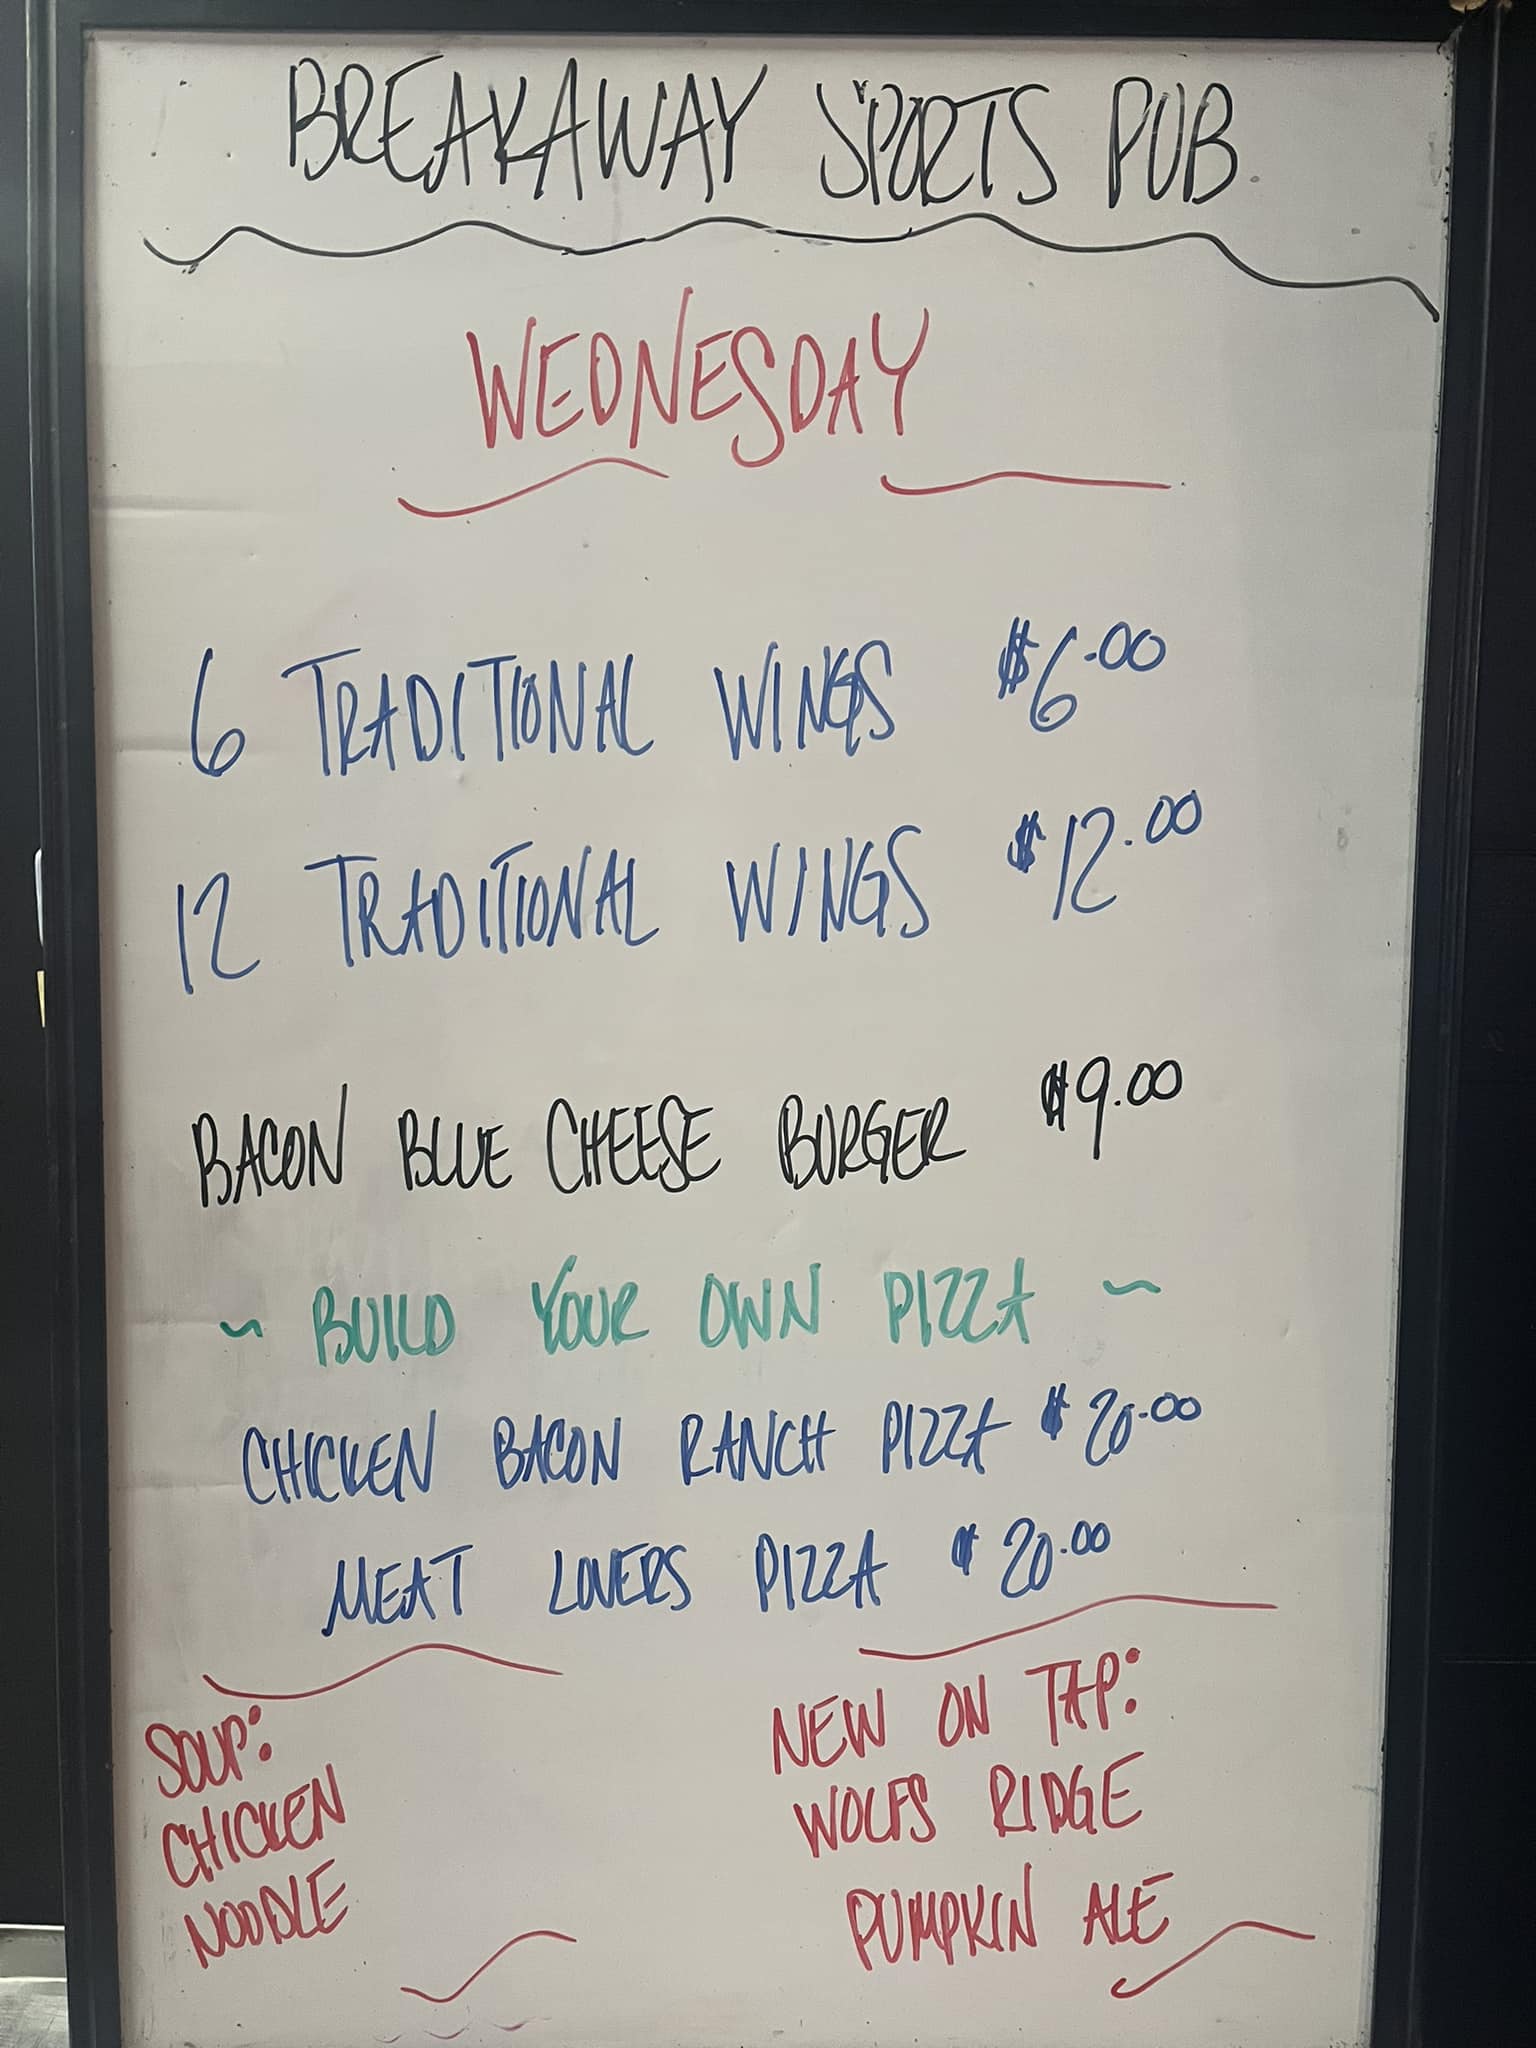 BREAKAWAY SPORTS PUB
WEDNESDAY
6 TRADITIONAL WINGS $6.00
12 TRADITIONAL WINGS $12.00
BACON BLUE CHEESE BURGER $9.00
~ BUILD YOUR OWN PIZZA ~
CHICKEN BACON RANCH PIZZA $20.00
MEAT LOVERS PIZZA $20.00
SOUP:
CHICKEN
NOODLE
NEW ON TAP:
WOLFS RIDGE
PUMPKIN ALE